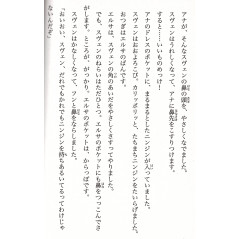 アナが、そんなスヴェンの鼻の頭を、やさしくなでました。
スヴェンはうれしくなって、アナに鼻先をこすりつけます。
すると……いいものめっけ！
アナのドレスのポケットに、まるまるとしたニンジンが入っていました。
スヴェンはおおよろこび。カリッポリッと、たちまちたいらげました。
おつぎはエルサのばんです。
エルサは、スヴェンの角のあいだをやさしくさすってやりました。
でも、スヴェンのねらいはただひとつ。エルサのポケットにも鼻をつっこんでさ
がします。ところが、がっかり。エルサのポケットは、からっぽです。
スヴェンはかなしくなって、フンと鼻をならしました。
「おいおい、スヴェン、だれでもかれでもニンジンを持ちあるいてるってわけじゃ
ないんだぞ」